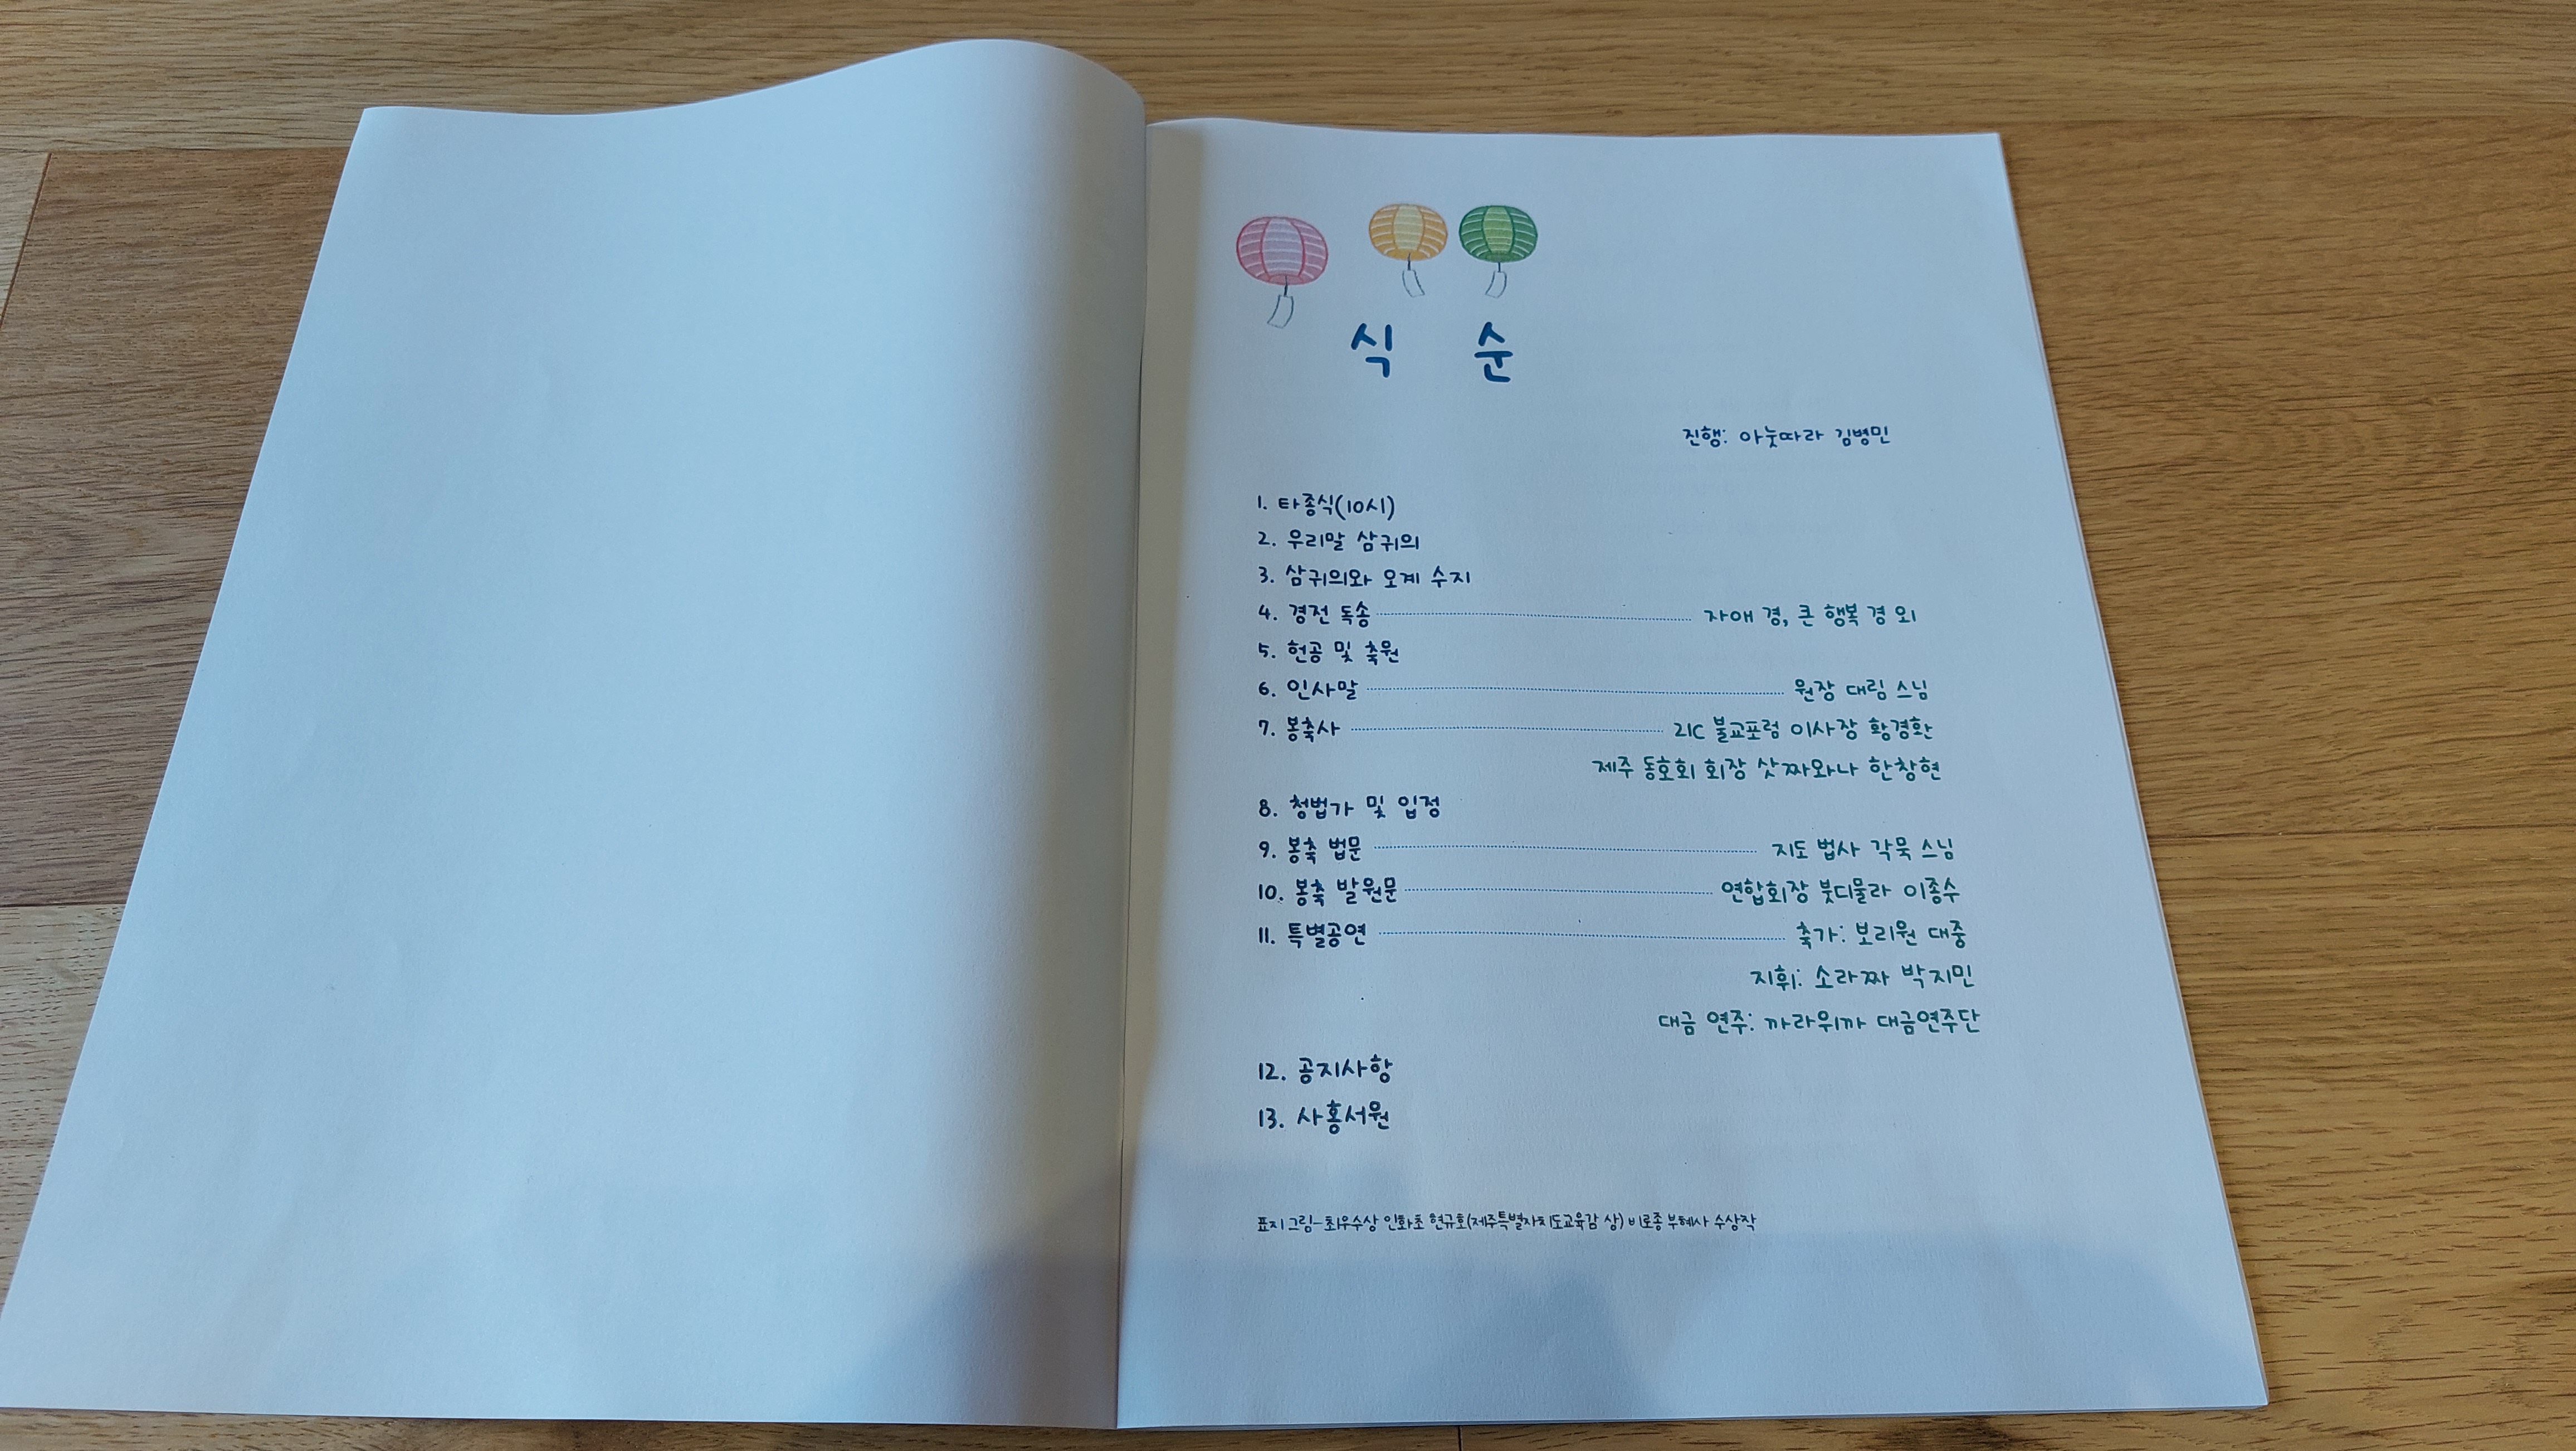 식 순
진행: 아눗따라 김병민
1. 타종식(10시)
2. 우리말 삼귀의
3. 삼귀의와 오계 수지
4. 경전 독송 자애 경, 큰 행복 경 외
5. 헌공 및 축원
6. 인사말 원장 대림 스님
7. 봉축사 21C 불교포럼 이사장 황경환
제주 동호회 회장 삿짜와나 한창현
8. 청법가 및 입정
9. 봉축 법문 지도 법사 각묵 스님
10. 봉축 발원문 연합회장 붓디물라 이종수
11. 특별공연 축가: 보리원 대중
지휘: 소라짜 박지민
대금 연주: 까라위까 대금연주단
12. 공지사항
13. 사홍서원
표지 그림-최우수상 인화초 현규호(제주특별자치도교육감 상) 비로종 부혜사 수상작